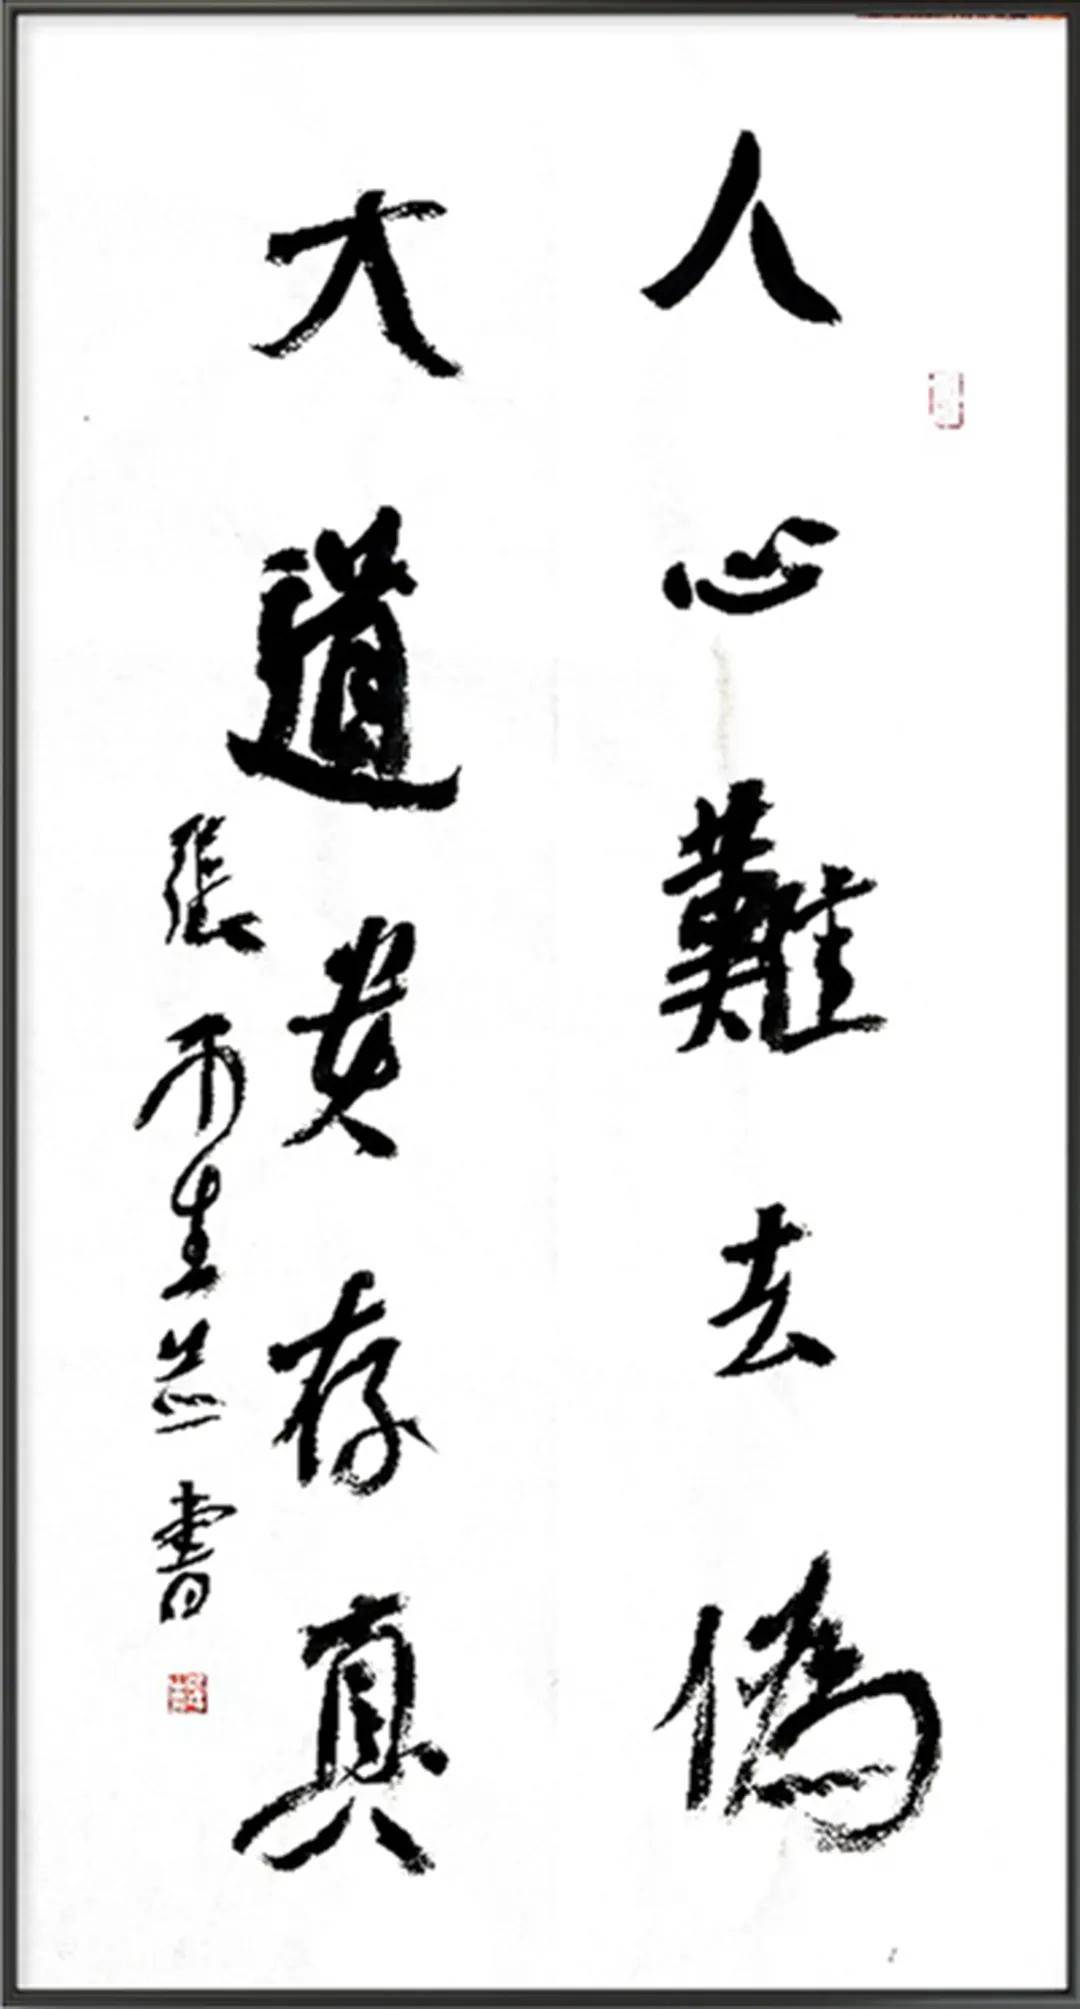 人心難去偽
大道貴存真
張雨生並書